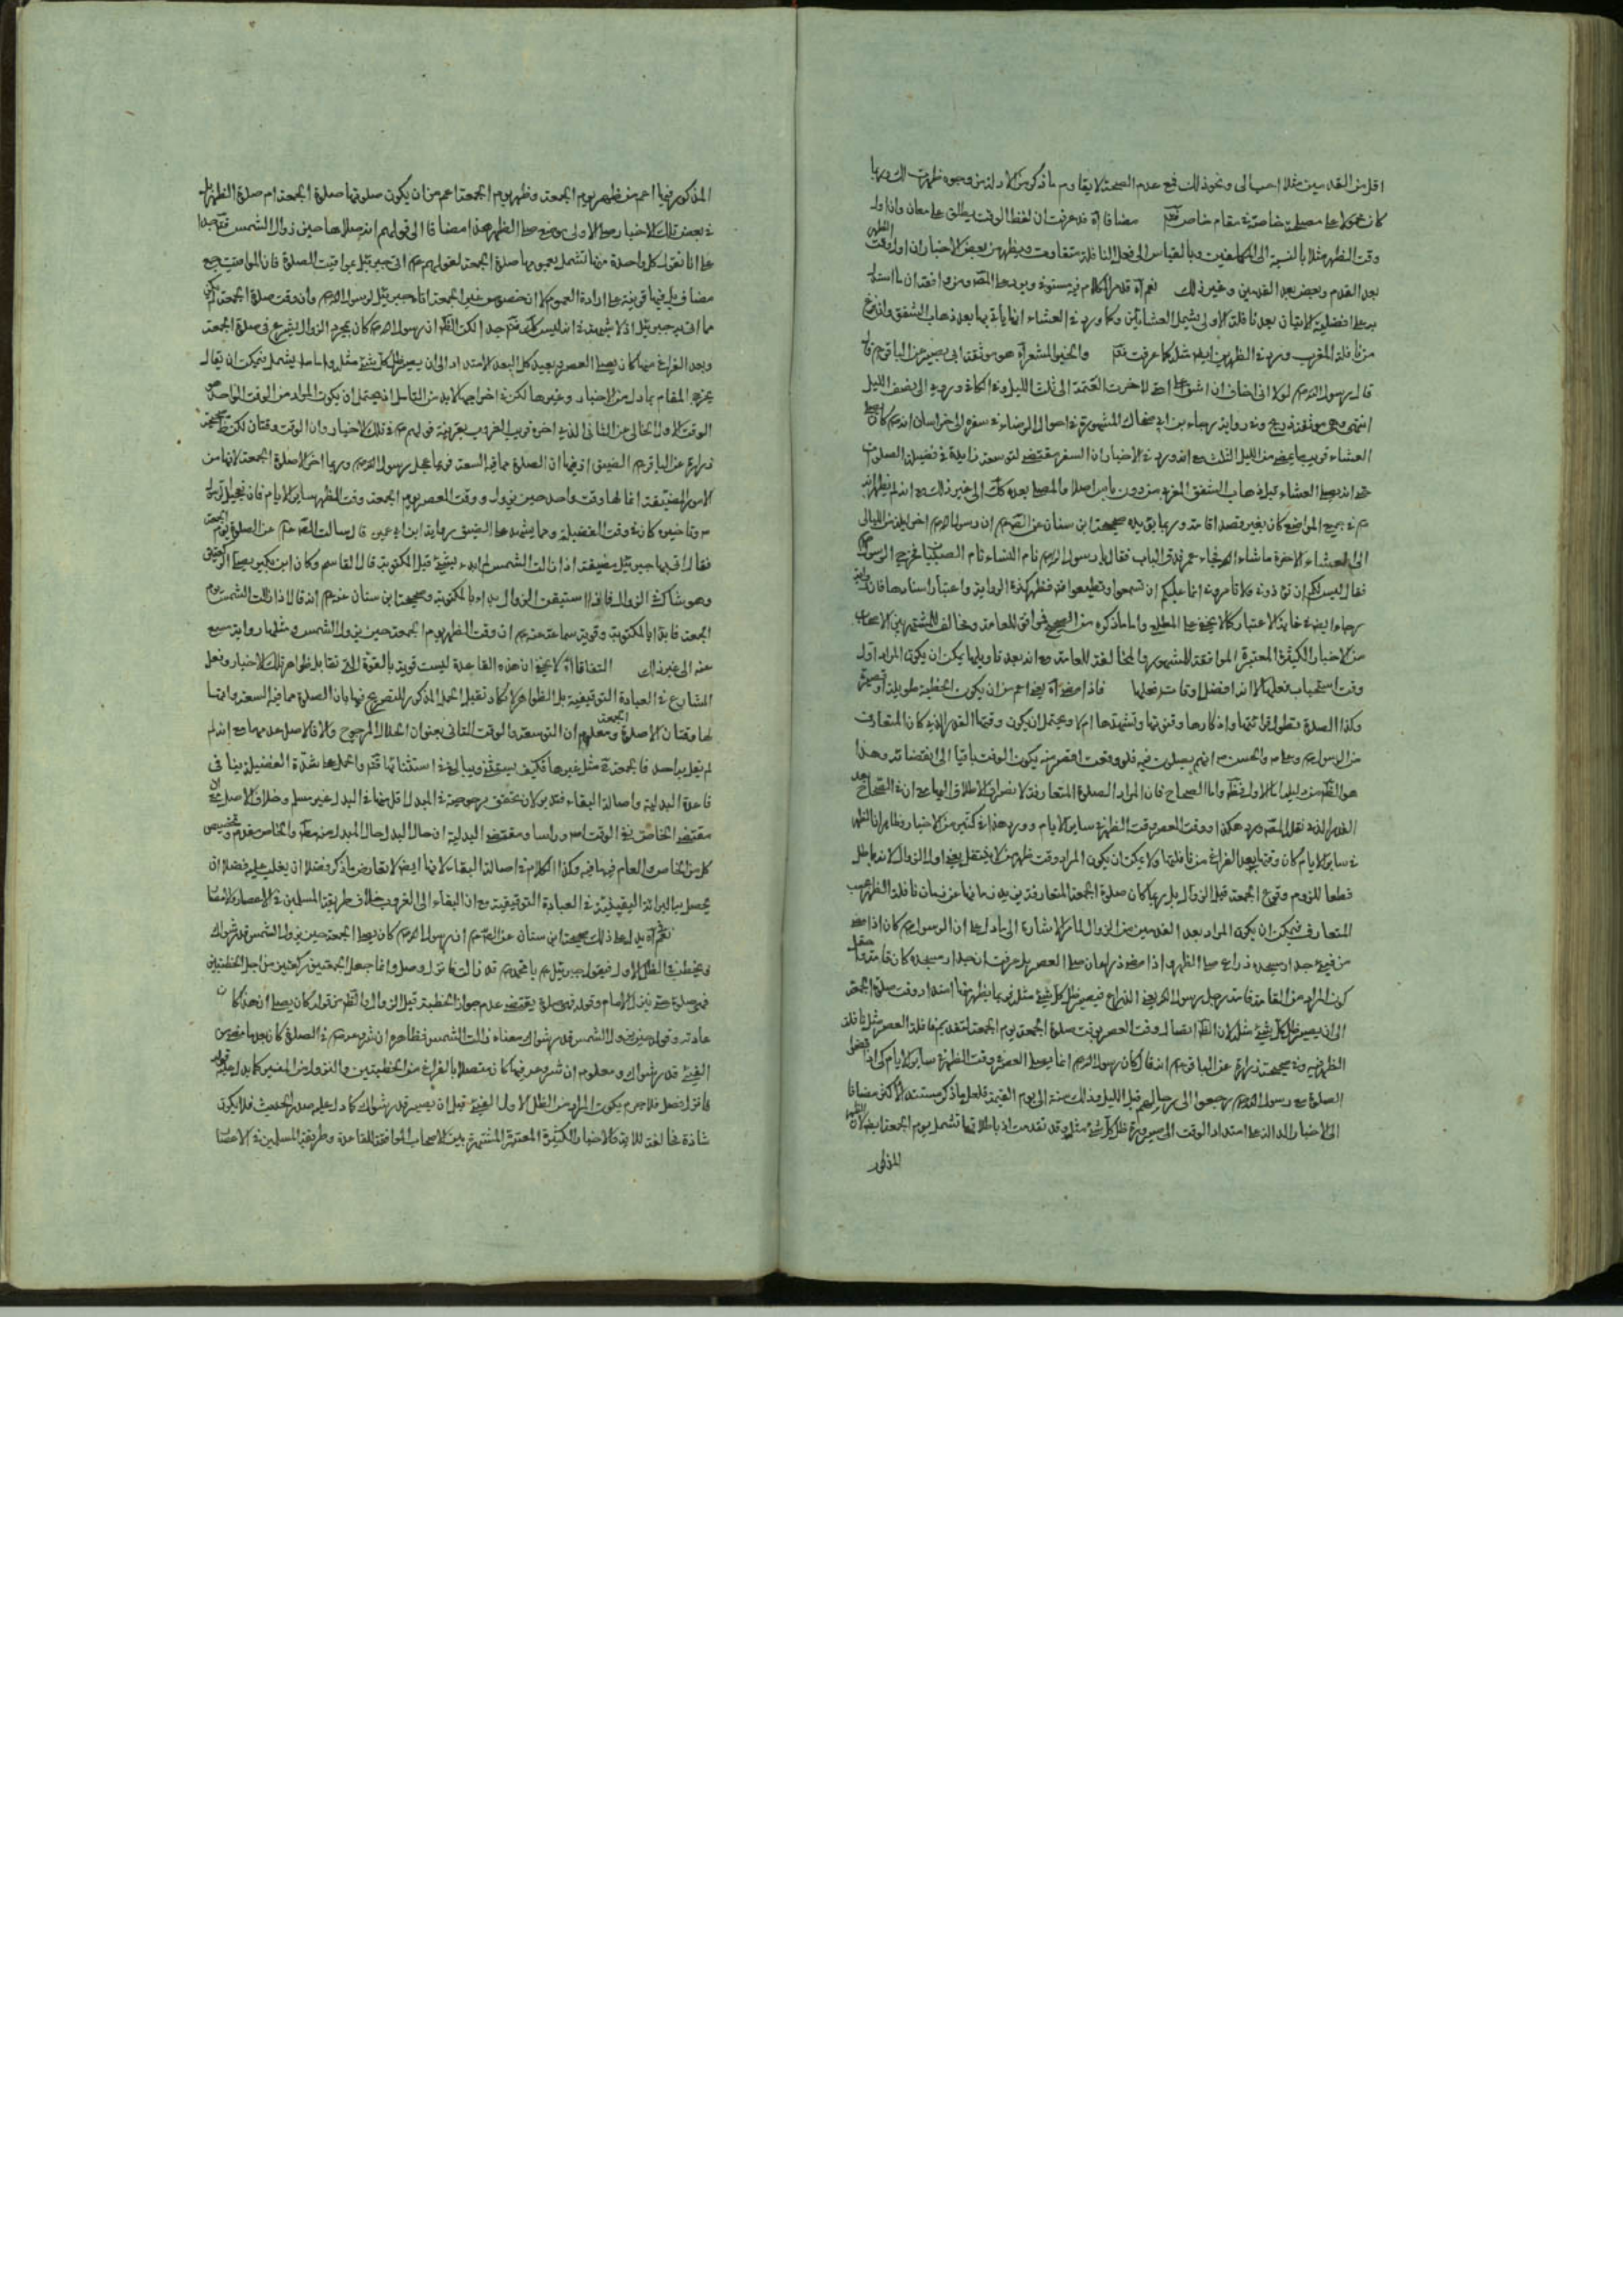 اقل من القدمين مثلا احب الى ونحو ذلك فمع عدم الصحة لا يقاوم ما ذكر من الادلة من وجوه ظهرت لك وربما
كان محمولا على مصلحة خاصة في مقام خاص فتأمل مضافا اه قد عرفت ان لفظ الوقت يطلق على معان وان اول
وقت الظهر مثلا بالنسبة الى المكلفين وبالقياس الى فعل النافلة متفاوت ويظهر من بعض الاخبار ان اول وقت الظهر
بعد القدم وبعض بعد القدمين وغير ذلك نعم اه قد مر الكلام فيه مستوفى ويرد على المص ومن وافقه ان ما استدل
به على افضلية الاتيان بعد نافلة الاولى يشمل العشائين وكما ورد في العشاء انها ياتي بها بعد ذهاب الشفق والفراغ
من نافلة المغرب ورد في الظهرين ايضا مثله كما عرفت فتأمل والخبر المشعر اه هو موثقة ابي بصير عن الباقر ع قال
قال رسول الله ص لولا اني اخاف ان اشق على امتي لاخرت العتمة الى ثلث الليل وفي الكافي وروي الى نصف الليل
انتهى وهي موثقة ذريح وفي رواية رجاء بن ابي ضحاك المشهورة في احوال الرضا ع في سفره الى خراسان انه ع كان يصلي
العشاء قريب ما يمضي من الليل الثلث مع انه ورد في الاخبار ان السفر مقتضي لتوسعة زايدة في فضيلة الصلوة
حتى انه يصلي العشاء قبل ذهاب الشفق المغربي من دون باس اصلا والمصلي بعده كك الى غير ذلك مع انه لم يظهر انه
ع في جميع المواضع كان بغير قصد اقامة وربما يؤيده صحيحة ابن سنان عن الصادق ع ان رسول الله ص اخر ليلة من الليالي
العشاء الاخرة ما شاء الله فجاء عمر فدق الباب فقال يا رسول الله ص نام النساء نام الصبيان فخرج الرسول ص
فقال ليس لكم ان تؤذوني ولا تامروني انما عليكم ان تسمعوا وتطيعوا فتظهر كهذه الرواية واعتبار اسنادها فان رواية
رجاء ايضا في غاية الاعتبار كما لا يخفى على المطلع واما ما ذكره من الصحيح فموافق للعامة ومخالف للمشتهر بين الاصحاب
من الاخبار الكثيرة المعتبرة الموافقة للمشهور والمخالفة للعامة مع انه بعد تاويلها يمكن ان يكون المراد اول
وقت استحباب فعلها لا انه افضل اوقات فعلها فاذا مضى اه يعني اعم من ان يكون الخطبة طويلة او قصيرة
وكذا الصلوة بتطول قرائتها واذكارها وقنوتها وتشهدها ام لا ويحتمل ان يكون وقتها القدر الذي كان المتعارف
من الرسول ص وعلي ع والحسن ع انهم يصلون فيه فلو وقعت اقصر منه يكون الوقت باقيا الى انقضائه وهذا
هو الظاهر من دليله اما الاول فظاهر واما الصحاح فان المراد الصلوة المتعارفة لانصراف الاطلاق اليها مع ان في الصحاح بعد
القدر الذي نقل المص ورد هكذا ووقت العصر وقت الظهر في ساير الايام وورد هذا في كثير من الاخبار وظاهر ان الظهر
في ساير الايام كان وقتها بعد الفراغ من نافلتها ولا يمكن ان يكون المراد وقت ظهر من لا يتنفل يعني اول الزوال لانه باطل
قطعا للزوم وقوع الجمعة قبل الزوال بل ربما كان صلوة الجمعة المتعارفة يزيد زمانها عن زمان نافلة الظهر بحسب
المتعارف فيمكن ان يكون المراد بعد القدمين من الزوال لما مر الاشارة الى ما دل على ان الرسول ص كان اذا مضى
من فيئ جدار مسجده ذراع صلى الظهر واذا مضى ذراعان صلى العصر بل عرفت ان جدار مسجده كان قامة وما
كون المراد من القامة قامة رحل رسول الله ص يعني الذراع فيصير ظل كل شئ مثله فربما يظهر منها امتداد وقت صلوة الجمعة
الى ان يصير ظل كل شئ مثله لان الظاهر اتصال وقت العصر بوقت صلوة الجمعة يوم الجمعة لتقديم نافلة العصر مثل نافلة
الظهر فيه وفي صحيحة زرارة عن الباقر ع انه قال كان رسول الله ص انما يصلي العصر في وقت الظهر في ساير الايام كي اذا قضوا
الصلوة مع رسول الله ص رجعوا الى رحالهم قبل الليل وذلك سنة الى يوم القيمة فلعل ما ذكر مستند الاكثر مضافا
الى الاخبار الدالة على امتداد الوقت الى صيرورة ظل كل شئ مثله وقد تقدمت اذ باطلاقها تشمل يوم الجمعة ايضا لان الظهر
المذكور
المذكور فيها اعم من ظهر يوم الجمعة وظهر يوم الجمعة اعم من ان يكون صلوتها صلوة الجمعة ام صلوة الظهر بل
في بعض تلك الاخبار صلى الاولى موضع صلى الظهر هذا مضافا الى قولهم انه صلاها حين زوال الشمس
على انا نقول كل واحدة منها تشمل بعمومها صلوة الجمعة لقولهم ع اتى جبرئيل بمواقيت الصلوة فان المواقيت جمع
مضاف بل فيها قرينة على ارادة العموم لا ان خصوص غير الجمعة اتاه جبرئيل لرسول الله ص وان وقت صلوة الجمعة
ما اتى به جبرئيل اذ لا شبهة في انه ليس كك فتأمل جدا لكن الظاهر ان رسول الله ص كان بمجرد الزوال يشرع في صلوة الجمعة
وبعد الفراغ منها كان يصلي العصر وبعيد كل البعد الامتداد الى ان يصير ظل كل شئ مثله واما ما يشمل فيمكن ان يقال
يخرج المقام بما دل من الاخبار وغيرها لكن في اخراجها لا بد من التامل اذ يحتمل ان يكون المراد من الوقت الواحد هو
الوقت الاول الخالي عن الثاني الذي اخره قرب الغروب بقرينة قولهم ع في تلك الاخبار وان الوقت وقتان لكن في صحيحة
زرارة عن الباقر ع المضيق اذ فيها ان الصلوة مما فيه السعة فربما عجل رسول الله ص وربما اخر الا صلوة الجمعة فانها من
الامور المضيقة انما لها وقت واحد حين يزول ووقت العصر يوم الجمعة وقت الظهر ساير الايام فان تعجيل الرسول
ص وتاخيره كان في وقت الفضيلة ومما يشهد على الضيق رواية ابن ابي عمير قال سالت الصادق ع عن الصلوة يوم الجمعة
فقال نزل بها جبرئيل مضيقة اذا زالت الشمس فصلها قبل المكتوبة قال القاسم وكان ابن بكير يصلي الركعتين
وهو شاك في الزوال فاذا استيقن الزوال بدء بالمكتوبة وصحيحة ابن سنان عنه ع انه قال اذا زالت الشمس يوم
الجمعة فابدأ بالمكتوبة وقوية سماعة عنه ع ان وقت الظهر يوم الجمعة حين يزول الشمس ومثلها رواية سميع
عنه الى غير ذلك التفاتا اه لا يخفى ان هذه القاعدة ليست قوية بالقوة التي تقابل ظواهر تلك الاخبار وفعل
الشارع في العبادة التوقيفية بل الظواهر لا تكاد تقبل الحمل المذكور للتصريح فيها بان الصلوة مما فيه السعة وانها
لها وقتان الا صلوة الجمعة ومعلوم ان التوسعة والوقت الثاني بعنوان الحلال المرجوح والا فالاصل عدمها مع انه لم
لم يقل به احد فالجمعة مثل غيرها فكيف يستثنى ويبالغ في استثنائها فتأمل واحملها شدة الفضيلة ينافي
قاعدة البدلية واصالة البقاء فتدبر لان تحقق مرجوحية في المبدل اقل منها في البدل غير مسلم وخلاف الاصل
مقتضى الخاص نفي الوقت راسا ومقتضى البدلية ان حال البدل حال المبدل منه مطلقا والخاص مقدم وتخصيص
كل من الخاص والعام فيه ما فيه وكذا الكلام في اصالة البقاء لانها ايضا لا تعارض ما ذكر فضلا ان يغلب عليه فضلا ان
يحصل بها البرائة اليقينية في العبادة التوقيفية مع ان البقاء الى الغروب خلاف طريقة المسلمين في الاعصار والامصار
نعم اه يدل على ذلك صحيحة ابن سنان عن الصادق ع ان رسول الله ص كان يصلي الجمعة حين يزول الشمس قدر شراك
ويخطب في الظل الاول فيقول جبرئيل ع يا محمد ص قد زالت فانزل وصل وانما جعل الجمعة ركعتين من اجل الخطبتين
فهي صلوة حتى ينزل الامام وقوله فهي صلوة يقتضي عدم جواز الخطبة قبل الزوال والظاهر من قوله كان يصلي ان هذا كان
عادته وقوله حين يزول الشمس قدر شراك معناه زالت الشمس فظاهره ان شروعه ص في الصلوة كان بعد ما مضى من
الفيئ قدر شراك ومعلوم ان شروعه فيها كان متصلا بالفراغ من الخطبتين والنزول من المنبر كما يدل عليه قوله
فانزل فصل فلا جرم يكون المراد من الظل الاول الفيئ قبل ان يصير قدر شراك كما دل عليه صدر الحديث فلا يكون
شاذة مخالفة للاية والاخبار الكثيرة المعتبرة المشتهرة بين الاصحاب الموافقة للقاعدة وطريقة المسلمين في الاعصار